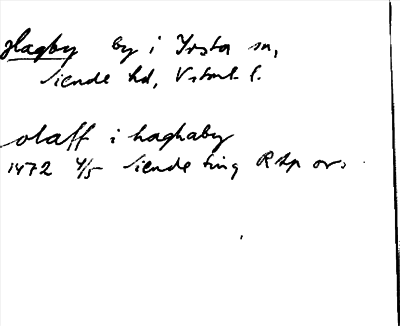 Hagby by i Irsta sn,
Siende hd, Vstml l.
olaff i haghaby
1472 4/5 Siende ting RAp or.